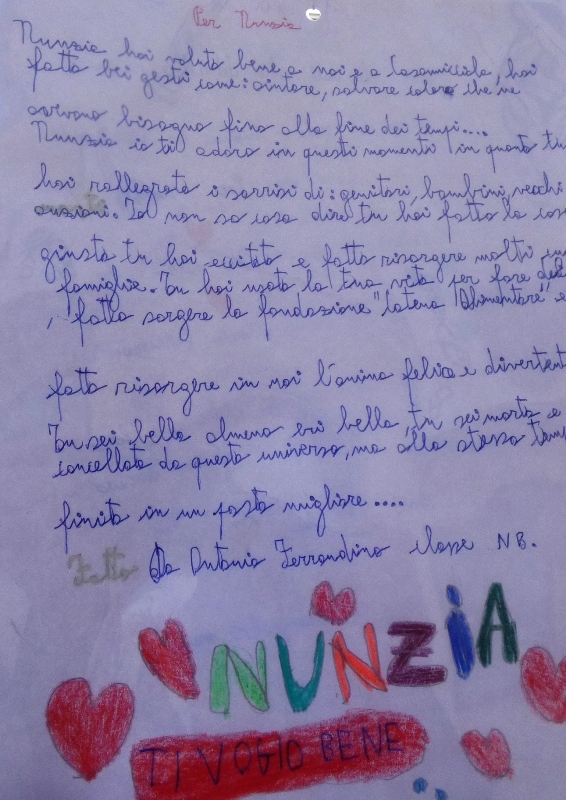 Per Nunzia
Nunzia hai voluto bene a noi e a Casamicciola, hai
fatto bei gesti come: aiutare, salvare coloro che ne
avevano bisogno fino alla fine dei tempi...
Nunzia io ti adoro in questi momenti in quanto tu
hai rallegrato i sorrisi di: genitori, bambini, vecchi
anziani. Io non so cosa dire tu hai fatto la cosa
giusta tu hai e fatto risorgere molti
famiglie. Tu hai usato la tua vita per fare del
, fatto sorgere la fondazione "Catena Alimentare" e
fatto risorgere in noi l'anima felice e divertent
Tu sei bella almeno eri bella, tu sei morta e
cancellata da questo universo, ma allo stesso tem
finita in un posto migliore ....
Fatto Da Antonio Ferrandino classe NB.
NUNZIA
TI VOGIO BENE